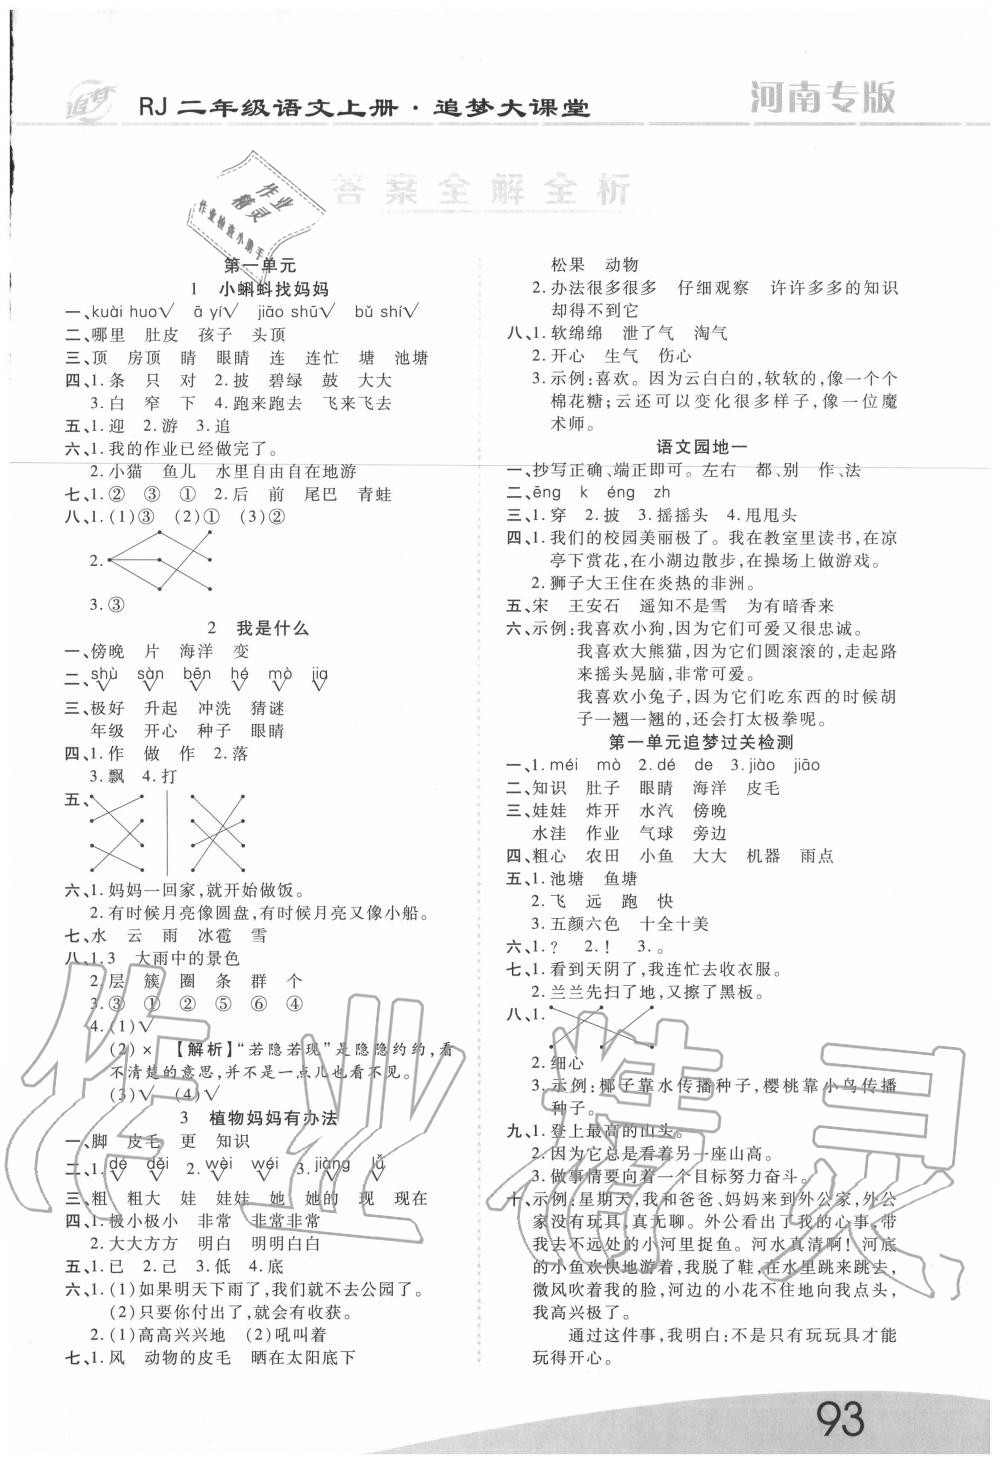 追梦
RJ 二年级语文上册·追梦大课堂
河南专版
答案全解全析
作业
精灵
作业检查小助手
第一单元
1 小蝌蚪找妈妈
一、kuài huo√ ā yí√ jiāo shū√ bǔ shí√
二、哪里 肚皮 孩子 头顶
三、顶 房顶 睛 眼睛 连 连忙 塘 池塘
四、1.条 只 对 2.披 碧绿 鼓 大大
3.白 窄 下 4.跑来跑去 飞来飞去
五、1.迎 2.游 3.追
六、1.我的作业已经做完了。
2.小猫 鱼儿 水里自由自在地游
七、1.② ③ ① 2.后 前 尾巴 青蛙
八、1.(1)③ (2)① (3)②
2.
3.③
2 我是什么
一、傍晚 片 海洋 变
二、shù sàn bēn hé mò jia
√ √ √ √ √ √
三、极好 升起 冲洗 猜谜
年级 开心 种子 眼睛
四、1.作 做 作 2.落
3.飘 4.打
五、
六、1.妈妈一回家,就开始做饭。
2.有时候月亮像圆盘,有时候月亮又像小船。
七、水 云 雨 冰雹 雪
八、1.3 大雨中的景色
2.层 簇 圈 条 群 个
3.③ ① ② ⑤ ⑥ ④
4.(1)√
(2)× 【解析】“若隐若现”是隐隐约约,看
不清楚的意思,并不是一点儿也看不见。
(3)√ (4)√
3 植物妈妈有办法
一、脚 皮毛 更 知识
二、1.dé děi 2.wèi wéi 3.jiàng lǚ
√ √ √ √ √ √
三、粗 粗大 娃 娃娃 她 她的 现 现在
四、1.极小极小 非常 非常非常
2.大大方方 明白 明明白白
五、1.已 2.己 3.低 4.底
六、1.(1)如果明天下雨了,我们就不去公园了。
(2)只要你付出了,就会有收获。
2.(1)高高兴兴地 (2)吼叫着
七、1.风 动物的皮毛 晒在太阳底下
松果 动物
2.办法很多很多 仔细观察 许许多多的知识
却得不到它
八、1.软绵绵 泄了气 淘气
2.开心 生气 伤心
3.示例:喜欢。因为云白白的,软软的,像一个个
棉花糖;云还可以变化很多样子,像一位魔
术师。
语文园地一
一、抄写正确、端正即可。左右 都、别 作、法
二、ēng k éng zh
三、1.穿 2.披 3.摇摇头 4.甩甩头
四、1.我们的校园美丽极了。我在教室里读书,在凉
亭下赏花,在小湖边散步,在操场上做游戏。
2.狮子大王住在炎热的非洲。
五、宋 王安石 遥知不是雪 为有暗香来
六、示例:我喜欢小狗,因为它们可爱又很忠诚。
我喜欢大熊猫,因为它们圆滚滚的,走起路
来摇头晃脑,非常可爱。
我喜欢小兔子,因为它们吃东西的时候胡
子一翘一翘的,还会打太极拳呢。
第一单元追梦过关检测
一、1.méi mò 2.dé de 3.jiào jiāo
二、知识 肚子 眼睛 海洋 皮毛
三、娃娃 炸开 水汽 傍晚
水洼 作业 气球 旁边
四、粗心 农田 小鱼 大大 机器 雨点
五、1.池塘 鱼塘
2.飞 远 跑 快
3.五颜六色 十全十美
六、1.? 2.! 3.。
七、1.看到天阴了,我连忙去收衣服。
2.兰兰先扫了地,又擦了黑板。
八、1.
2.细心
3.示例:椰子靠水传播种子,樱桃靠小鸟传播
种子。
九、1.登上最高的山头。
2.因为它总是看着另一座山高。
3.做事情要向着一个目标努力奋斗。
十、示例:星期天,我和爸爸、妈妈来到外公家,外公
家没有玩具,真无聊。外公看出了我的心事,带
我去不远处的小河里捉鱼。河水真清啊!河底
的小鱼欢快地游着,我脱了鞋,在水里跳来跳去,
微风吹着我的脸,河边的小花不住地向我点头,
我高兴极了。
通过这件事,我明白:不是只有玩玩具才能
玩得开心。
作业精灵
93